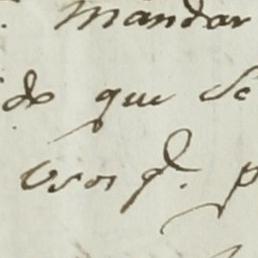 Mandar
do que Se
Usos q. p